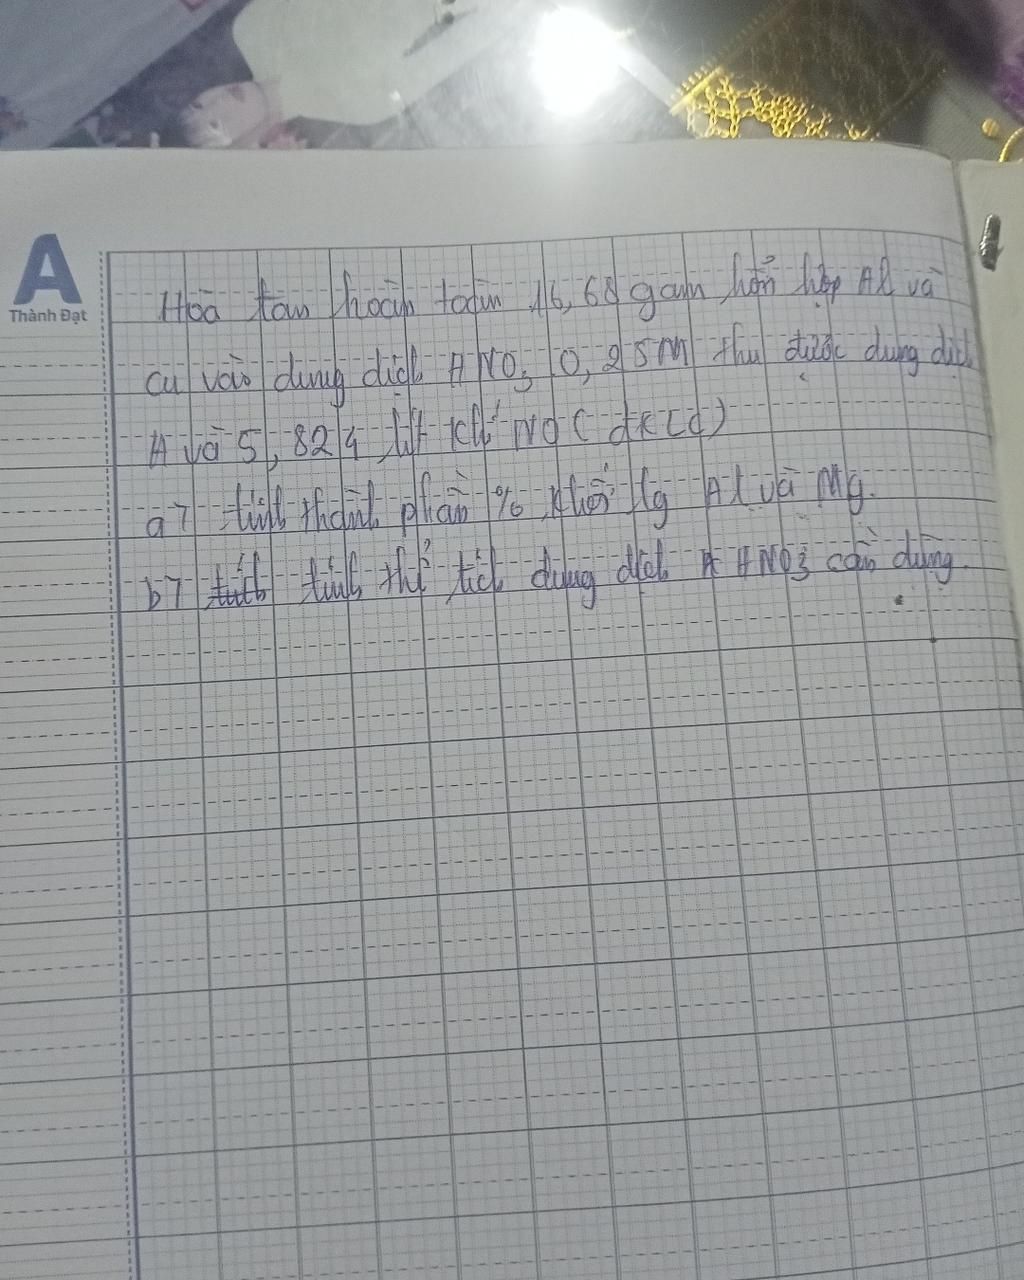 A
Thành Đạt
Hoà tan hoàn toàn 16,68 gam hỗn hợp Al và
Cu vào dung dịch HNO3 0,25M thu được dung dịch
A và 5,824 lít khí NO (đkcđ)
a7 tính thành phần % khối lg Al và Mg.
b7 tính thể tích dung dịch HNO3 cần dùng.